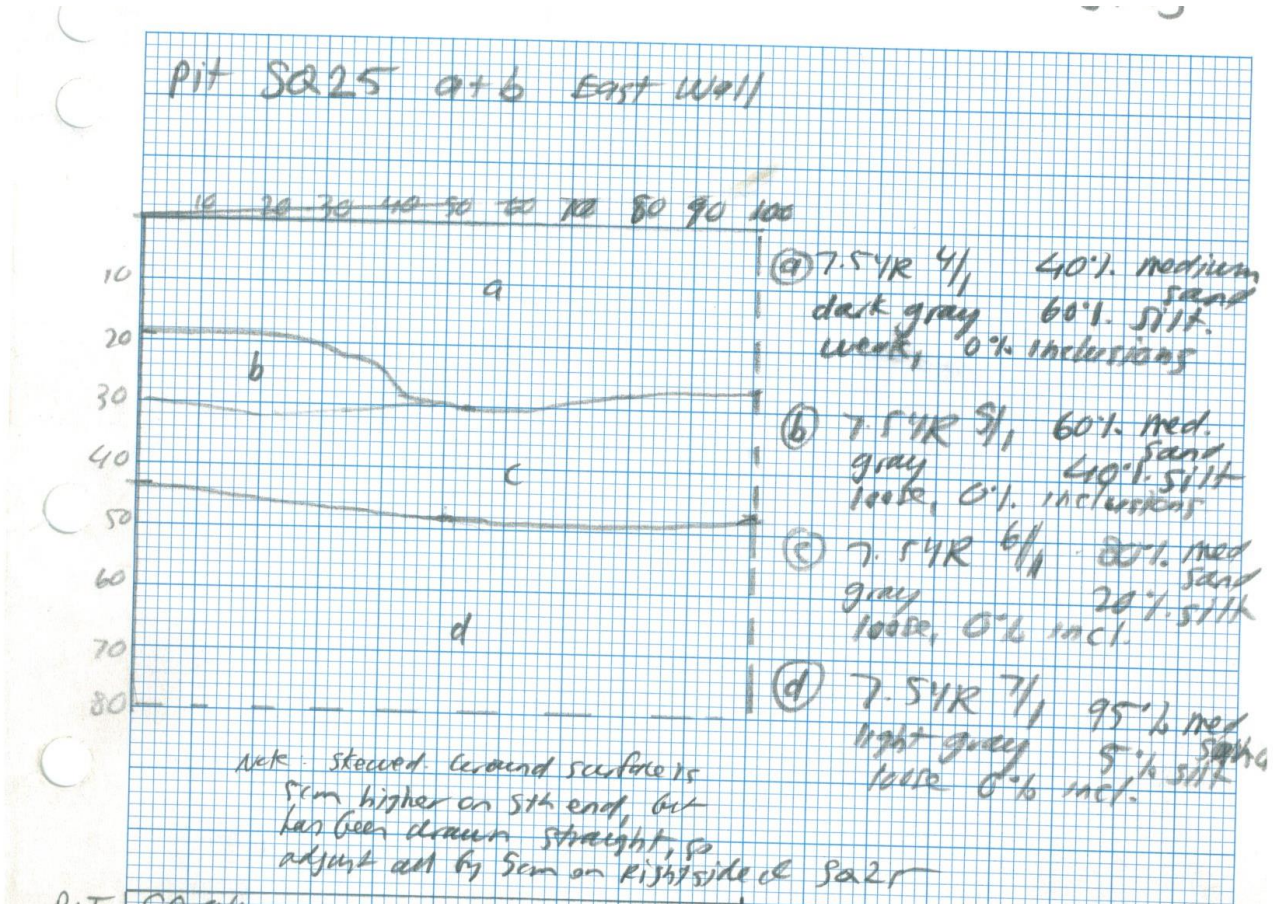 Pit SQ25 a+b East Wall
10 20 30 40 50 60 70 80 90 100
10
20
30
40
50
60
70
80
a
b
c
d
ⓐ 7.5YR 4/1 40% medium
sand
dark gray 60% silt.
weak, 0% inclusions
ⓑ 7.5YR 5/1 60% med.
sand
gray 40% silt
loose, 0% inclusions
ⓒ 7.5YR 6/1 80% med
sand
gray 20% silt
loose, 0% incl.
ⓓ 7.5YR 7/1 95% med
sand
light gray 5% silt
loose 0% incl.
Note skewed. Ground surface is
5cm higher on sth end, but
has been drawn straight, so
adjust all by 5cm on right side of SQ25